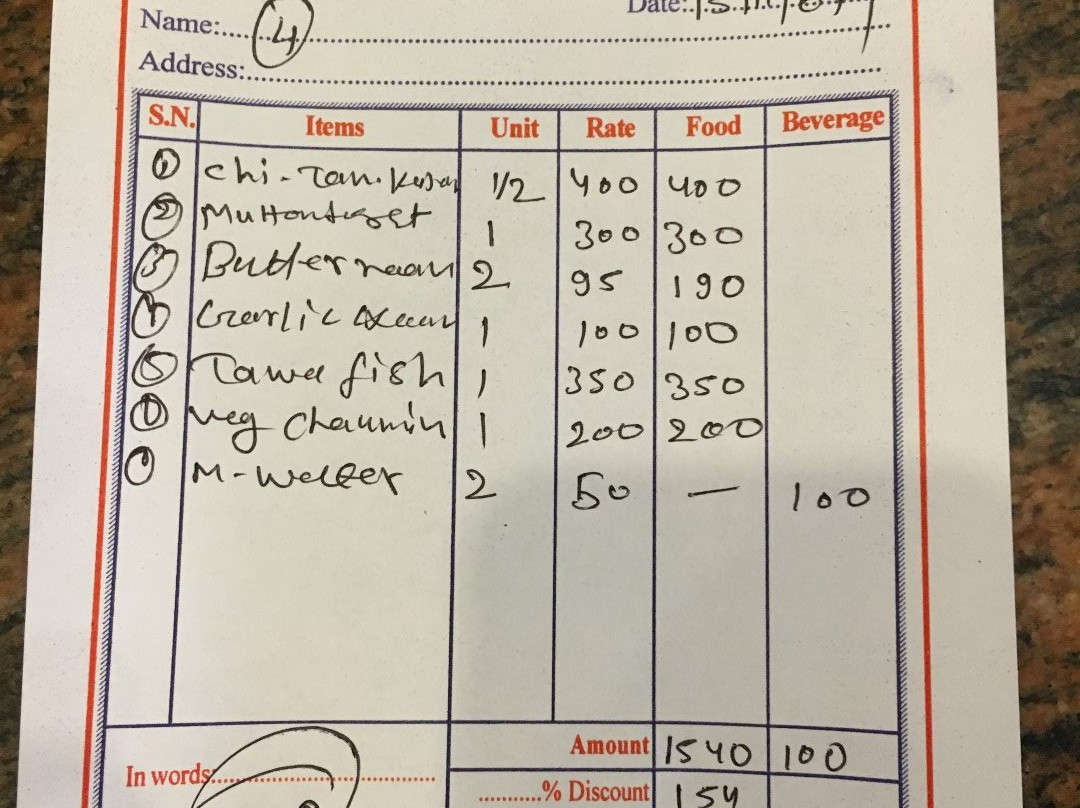 Name:.....(4)
Date:.
Address:
S.N. Items Unit Rate Food Beverage
1 Chi-Tan. 1/2 400 400
2 Mutton 1 300 300
3 Butter naan 2 95 190
Garlic 1 100 100
5 Tawa fish 1 350 350
Veg Chaumin 1 200 200
M-Water 2 50 — 100
Amount 1540 100
In words:
..........% Discount 154